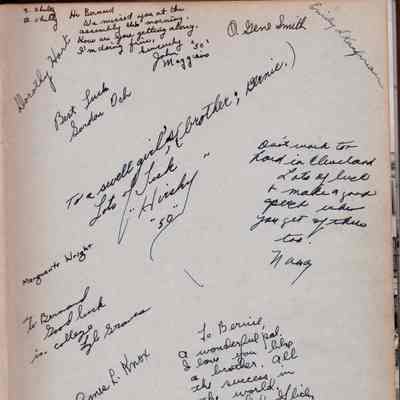 Hi Bernard
We missed you at the
assembly this morning.
How are you getting along.
I'm doing fine.
Sincerely
John "50"
Maggiso
O Gene Smith
Dorothy Hart
Best Luck
Gordon Och
To a swell girl's (brother; Bernie.)
Lots of Luck
"Hirsky"
"50"
Don't work too
hard in Cleveland
Lots of luck
& make a good
speech when
you get up there
too.
Nancy
Marguerite Wright
To Bernard
Good luck
in college
Lyle Graves
James L. Knox
To Bernie,
a wonderful pal.
I love you like
a brother. All
the success in
the world in